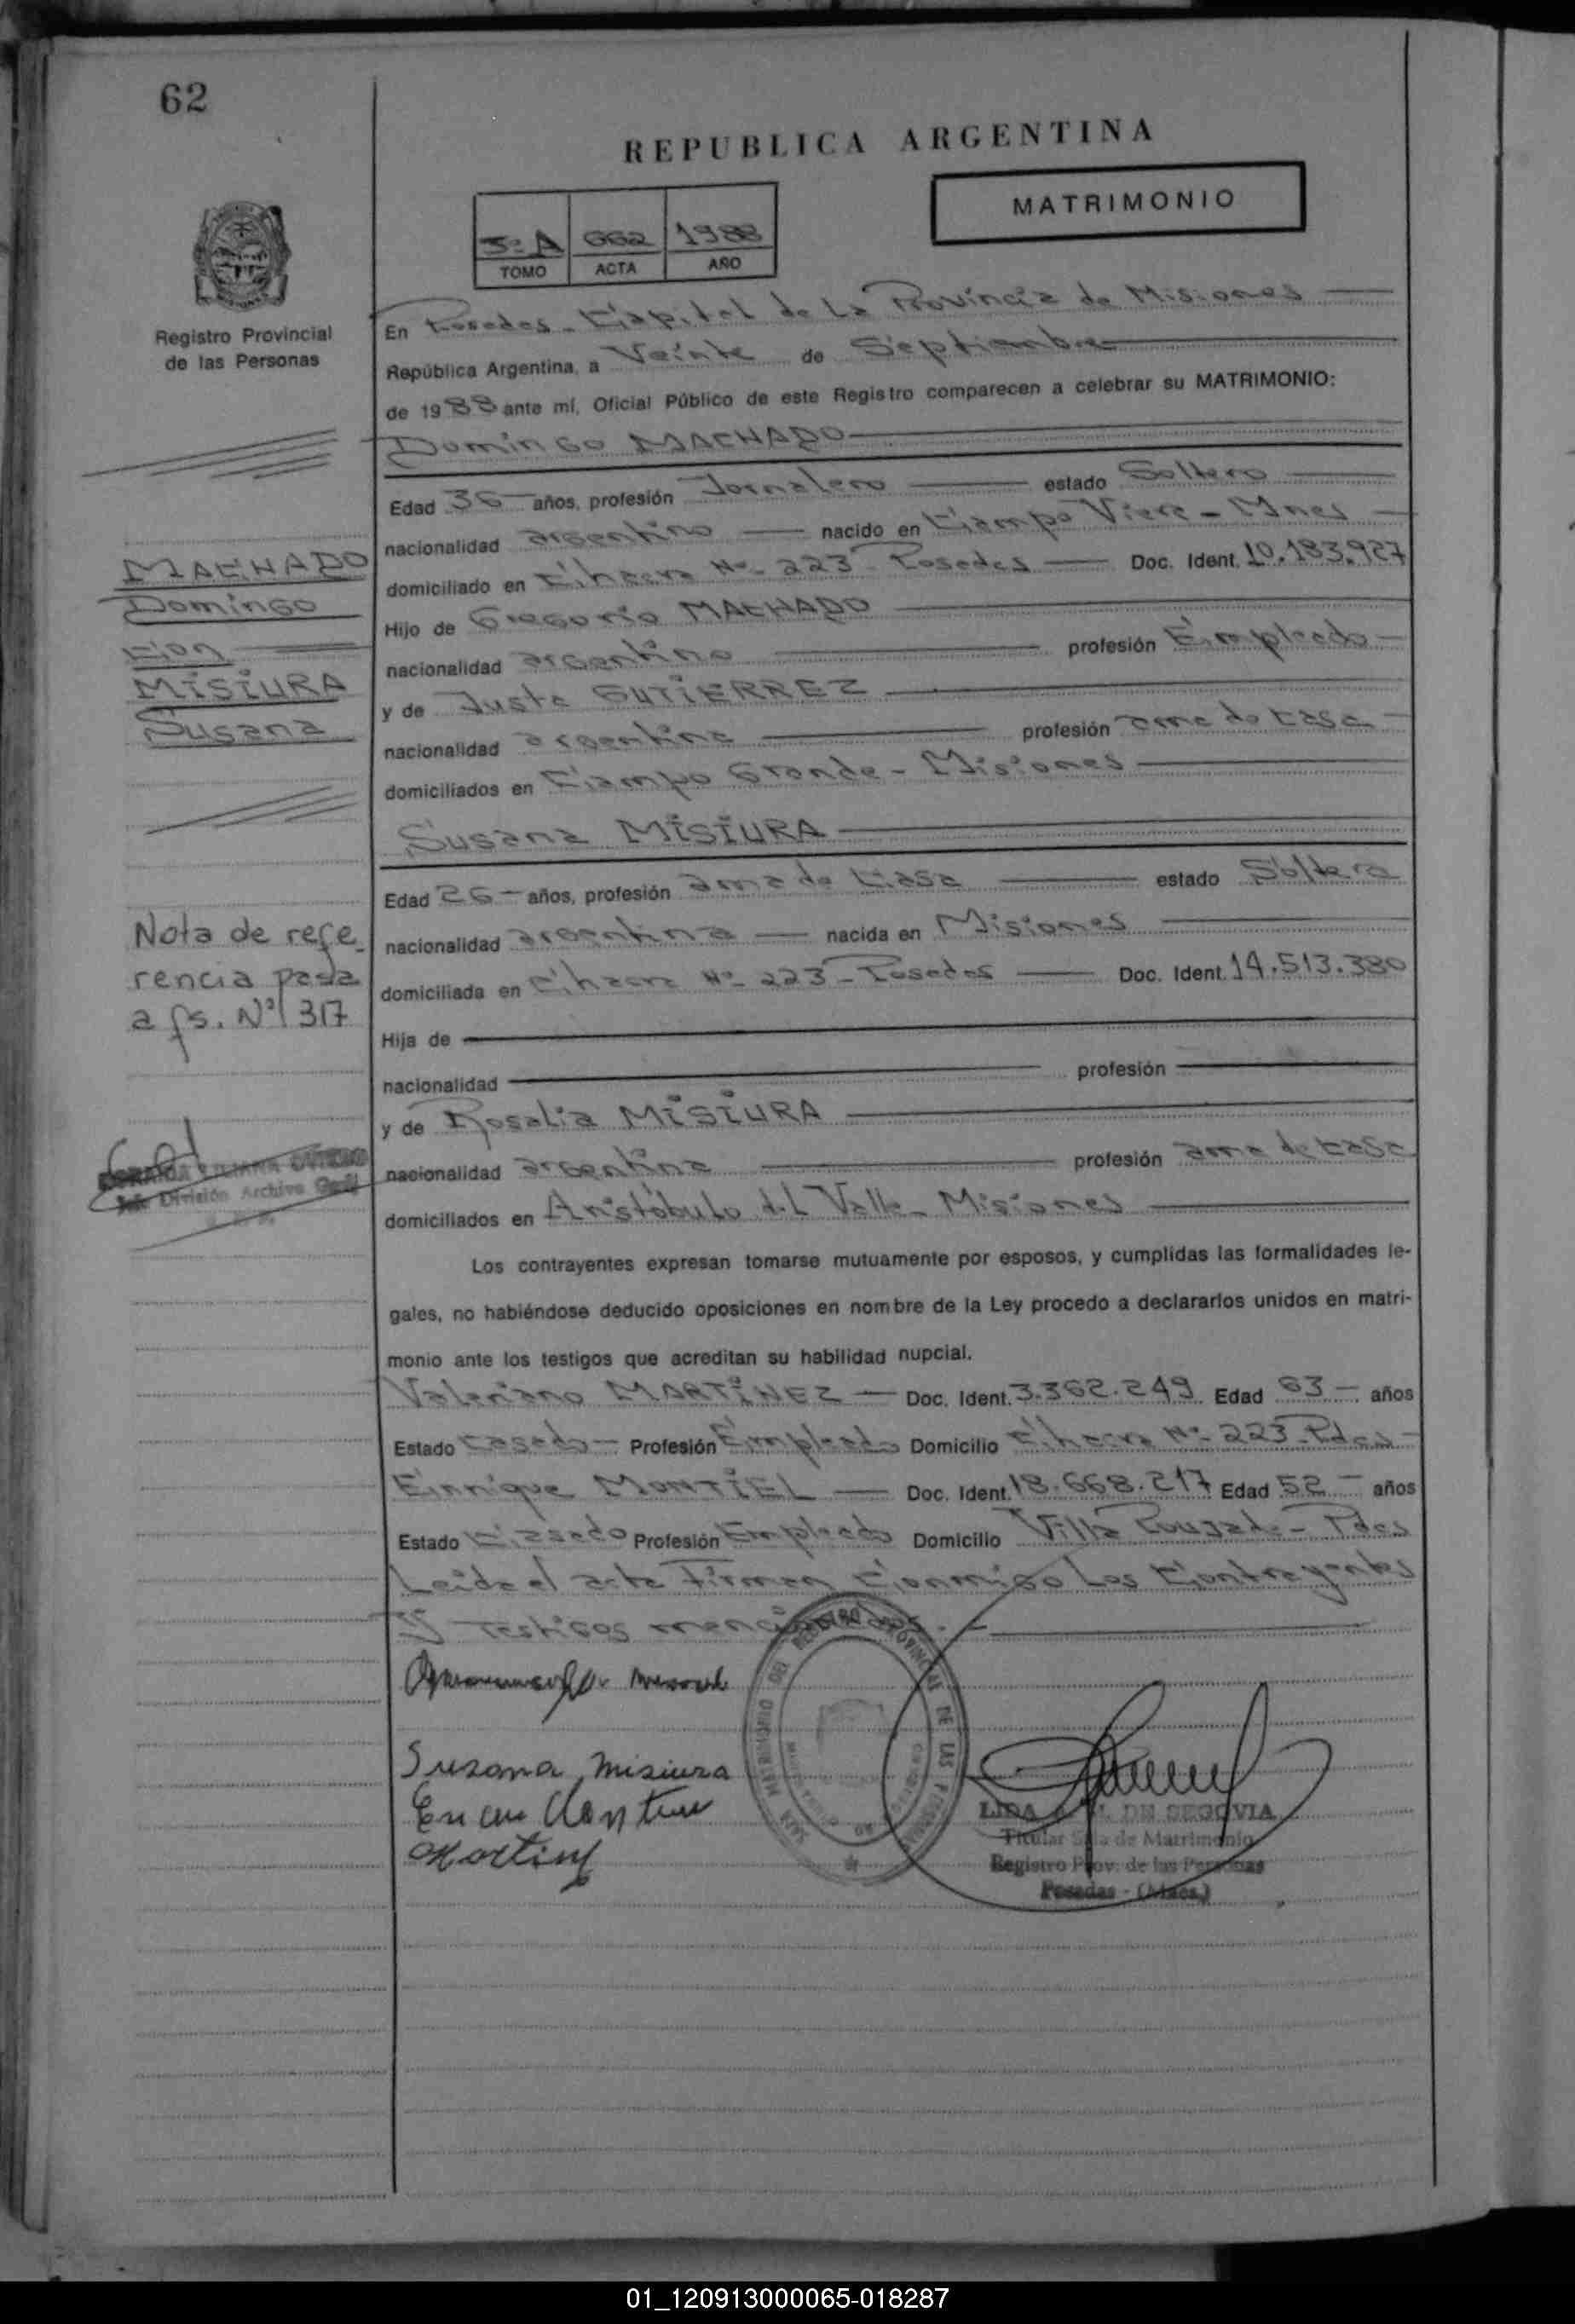 62
REPUBLICA ARGENTINA
MATRIMONIO
3º A 662 1988
TOMO ACTA AÑO
Registro Provincial
de las Personas
En Posadas - Capital de la Provincia de Misiones
República Argentina, a Veinte de Septiembre
de 1988 ante mí, Oficial Público de este Registro comparecen a celebrar su MATRIMONIO:
Domingo MACHADO
Edad 36 años, profesión Jornalero estado Soltero
nacionalidad argentino nacido en Campo Viera - Mnes
domiciliado en Chacra Nº 223 - Posadas Doc. Ident. 10.183.927
Hijo de Gregorio MACHADO
nacionalidad argentino profesión Empleado
y de Justa GUTIERREZ
nacionalidad argentina profesión ama de casa
domiciliados en Campo Grande - Misiones
MACHADO
Domingo
con
MISIURA
Susana
Susana MISIURA
Edad 26 años, profesión ama de casa estado Soltera
nacionalidad argentina nacida en Misiones
domiciliada en Chacra Nº 223 - Posadas Doc. Ident. 14.513.380
Hija de
nacionalidad profesión
y de Rosalia MISIURA
nacionalidad argentina profesión ama de casa
domiciliados en Aristóbulo del Valle - Misiones
Nota de refe-
rencia pasa
a fs. Nº 317
División Archivo
Los contrayentes expresan tomarse mutuamente por esposos, y cumplidas las formalidades le-
gales, no habiéndose deducido oposiciones en nombre de la Ley procedo a declararlos unidos en matri-
monio ante los testigos que acreditan su habilidad nupcial.
Valeriano MARTINEZ Doc. Ident. 3.362.249 Edad 63 años
Estado casado Profesión Empleado Domicilio Chacra Nº 223 - Pdas
Enrique MONTIEL Doc. Ident. 18.668.217 Edad 52 años
Estado Casado Profesión Empleado Domicilio Villa Poujade - Pdas
Leida el acta Firman Conmigo Los Contrayentes
Y Testigos mencionados.
Susana Misiura
LIDA DE SEGOVIA
Titular Sala de Matrimonio
Registro Prov. de las Personas
Posadas - (Mnes.)
01_120913000065-018287